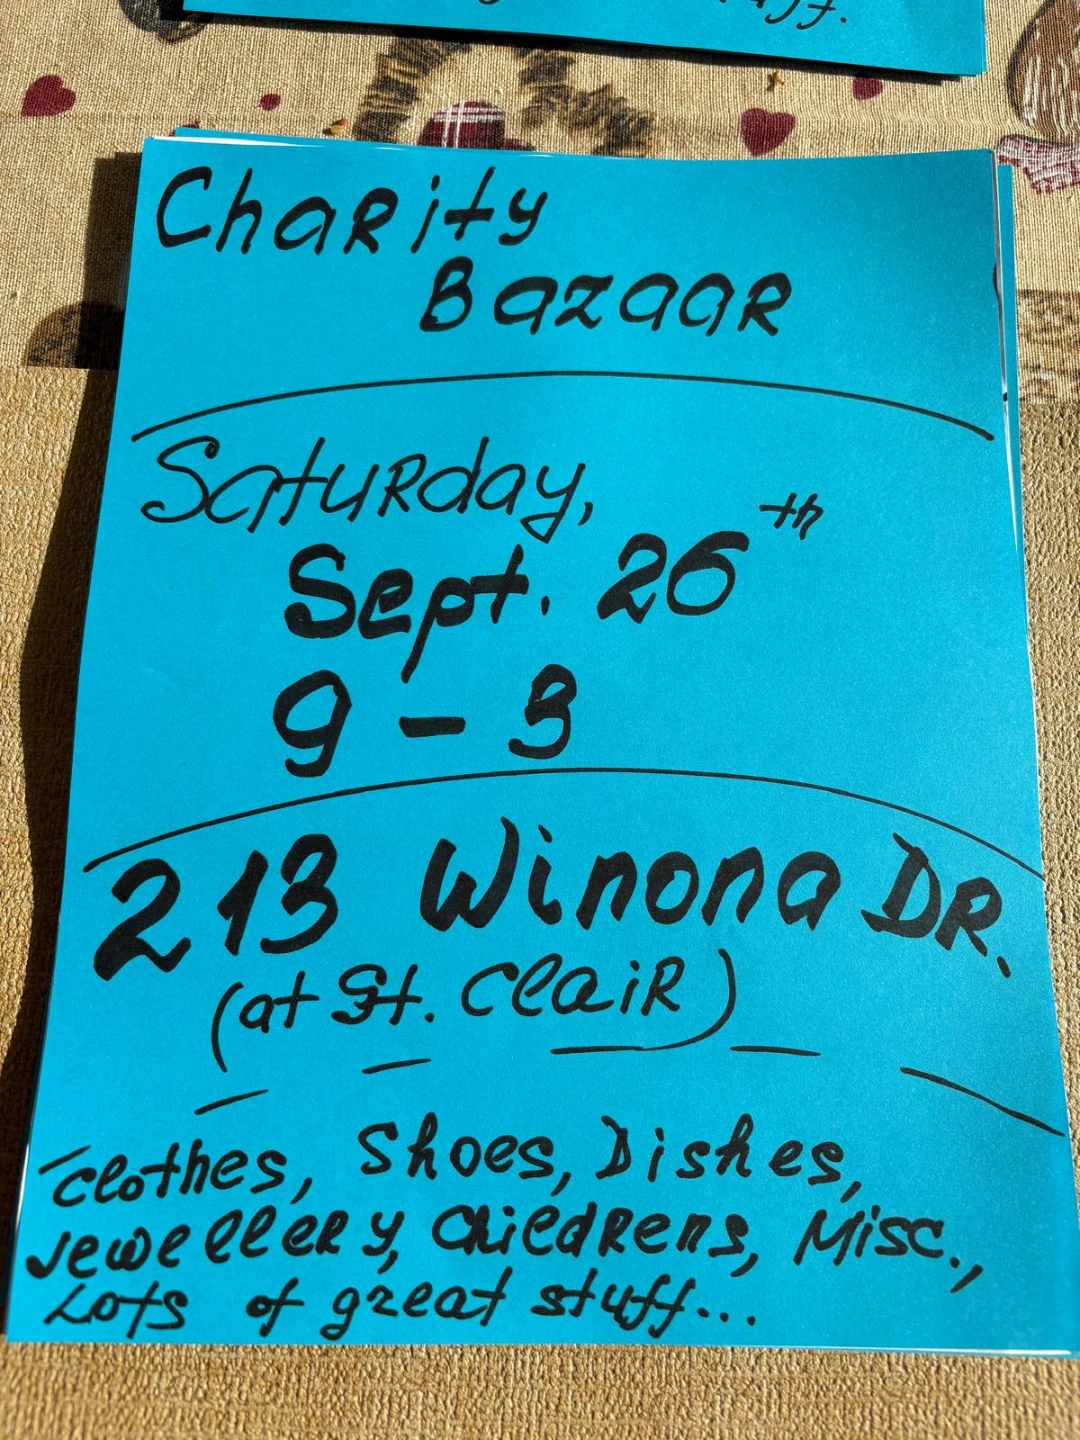 uff.
Charity
Bazaar
Saturday,
Sept. 26th
9 - 3
213 Winona Dr.
(at St. Clair)
Clothes, Shoes, Dishes,
Jewellery, Childrens, Misc.,
Lots of great stuff...